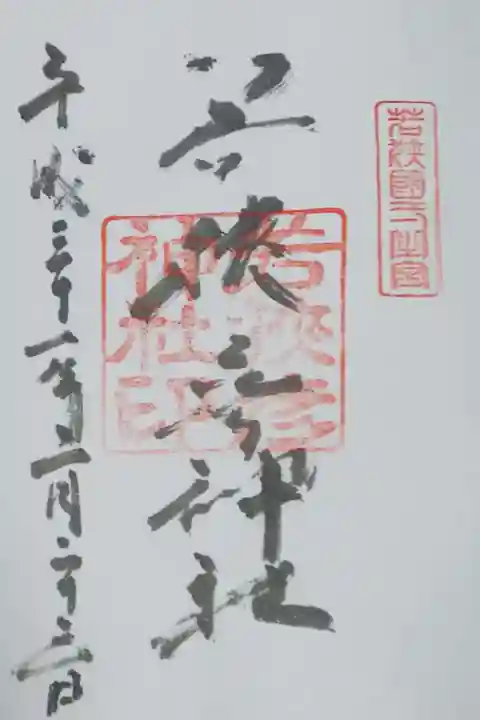 若狭國一之宮
若狭彦神社
若狭彦
神社印
平成三十一年二月二十三日